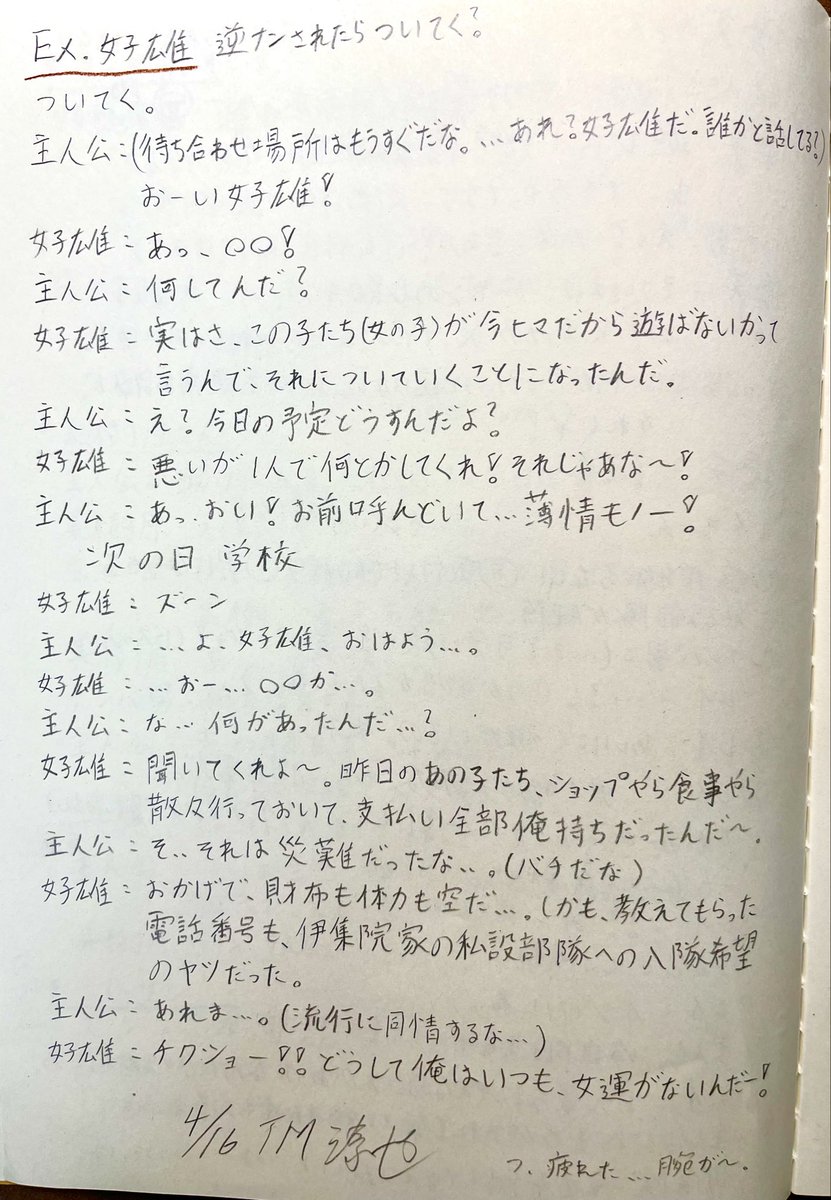 Ex. 好雄 逆ナンされたらついてく?
ついてく。
主人公:(待ち合わせ場所はもうすぐだな。…あれ?好雄だ。誰かと話してる?)
おーい好雄!
好雄:あっ、〇〇!
主人公:何してんだ?
好雄:実はさ、この子たち(女の子)が今ヒマだから遊ばないかって
言うんで、それについていくことになったんだ。
主人公:え?今日の予定どうすんだよ?
好雄:悪いが1人で何とかしてくれ!それじゃあな〜!
主人公:あっ、おい!お前呼んどいて…薄情モノー!
次の日 学校
好雄:ズーン
主人公:…よ、好雄、おはよう…。
好雄:…おー…〇〇か…。
主人公:な…何があったんだ…?
好雄:聞いてくれよ〜。昨日のあの子たち、ショップやら食事やら
散々行っておいて、支払い全部俺持ちだったんだ〜。
主人公:そ…それは災難だったな…。(バチだな)
好雄:おかげで、財布も体力も空だ…。しかも、教えてもらった
電話番号も、伊集院家の私設部隊への入隊希望
のヤツだった。
主人公:あれま…。(流行に同情するな…)
好雄:チクショー!!どうして俺はいつも、女運がないんだー!
4/16 TM
つ、疲れた…腕が〜。